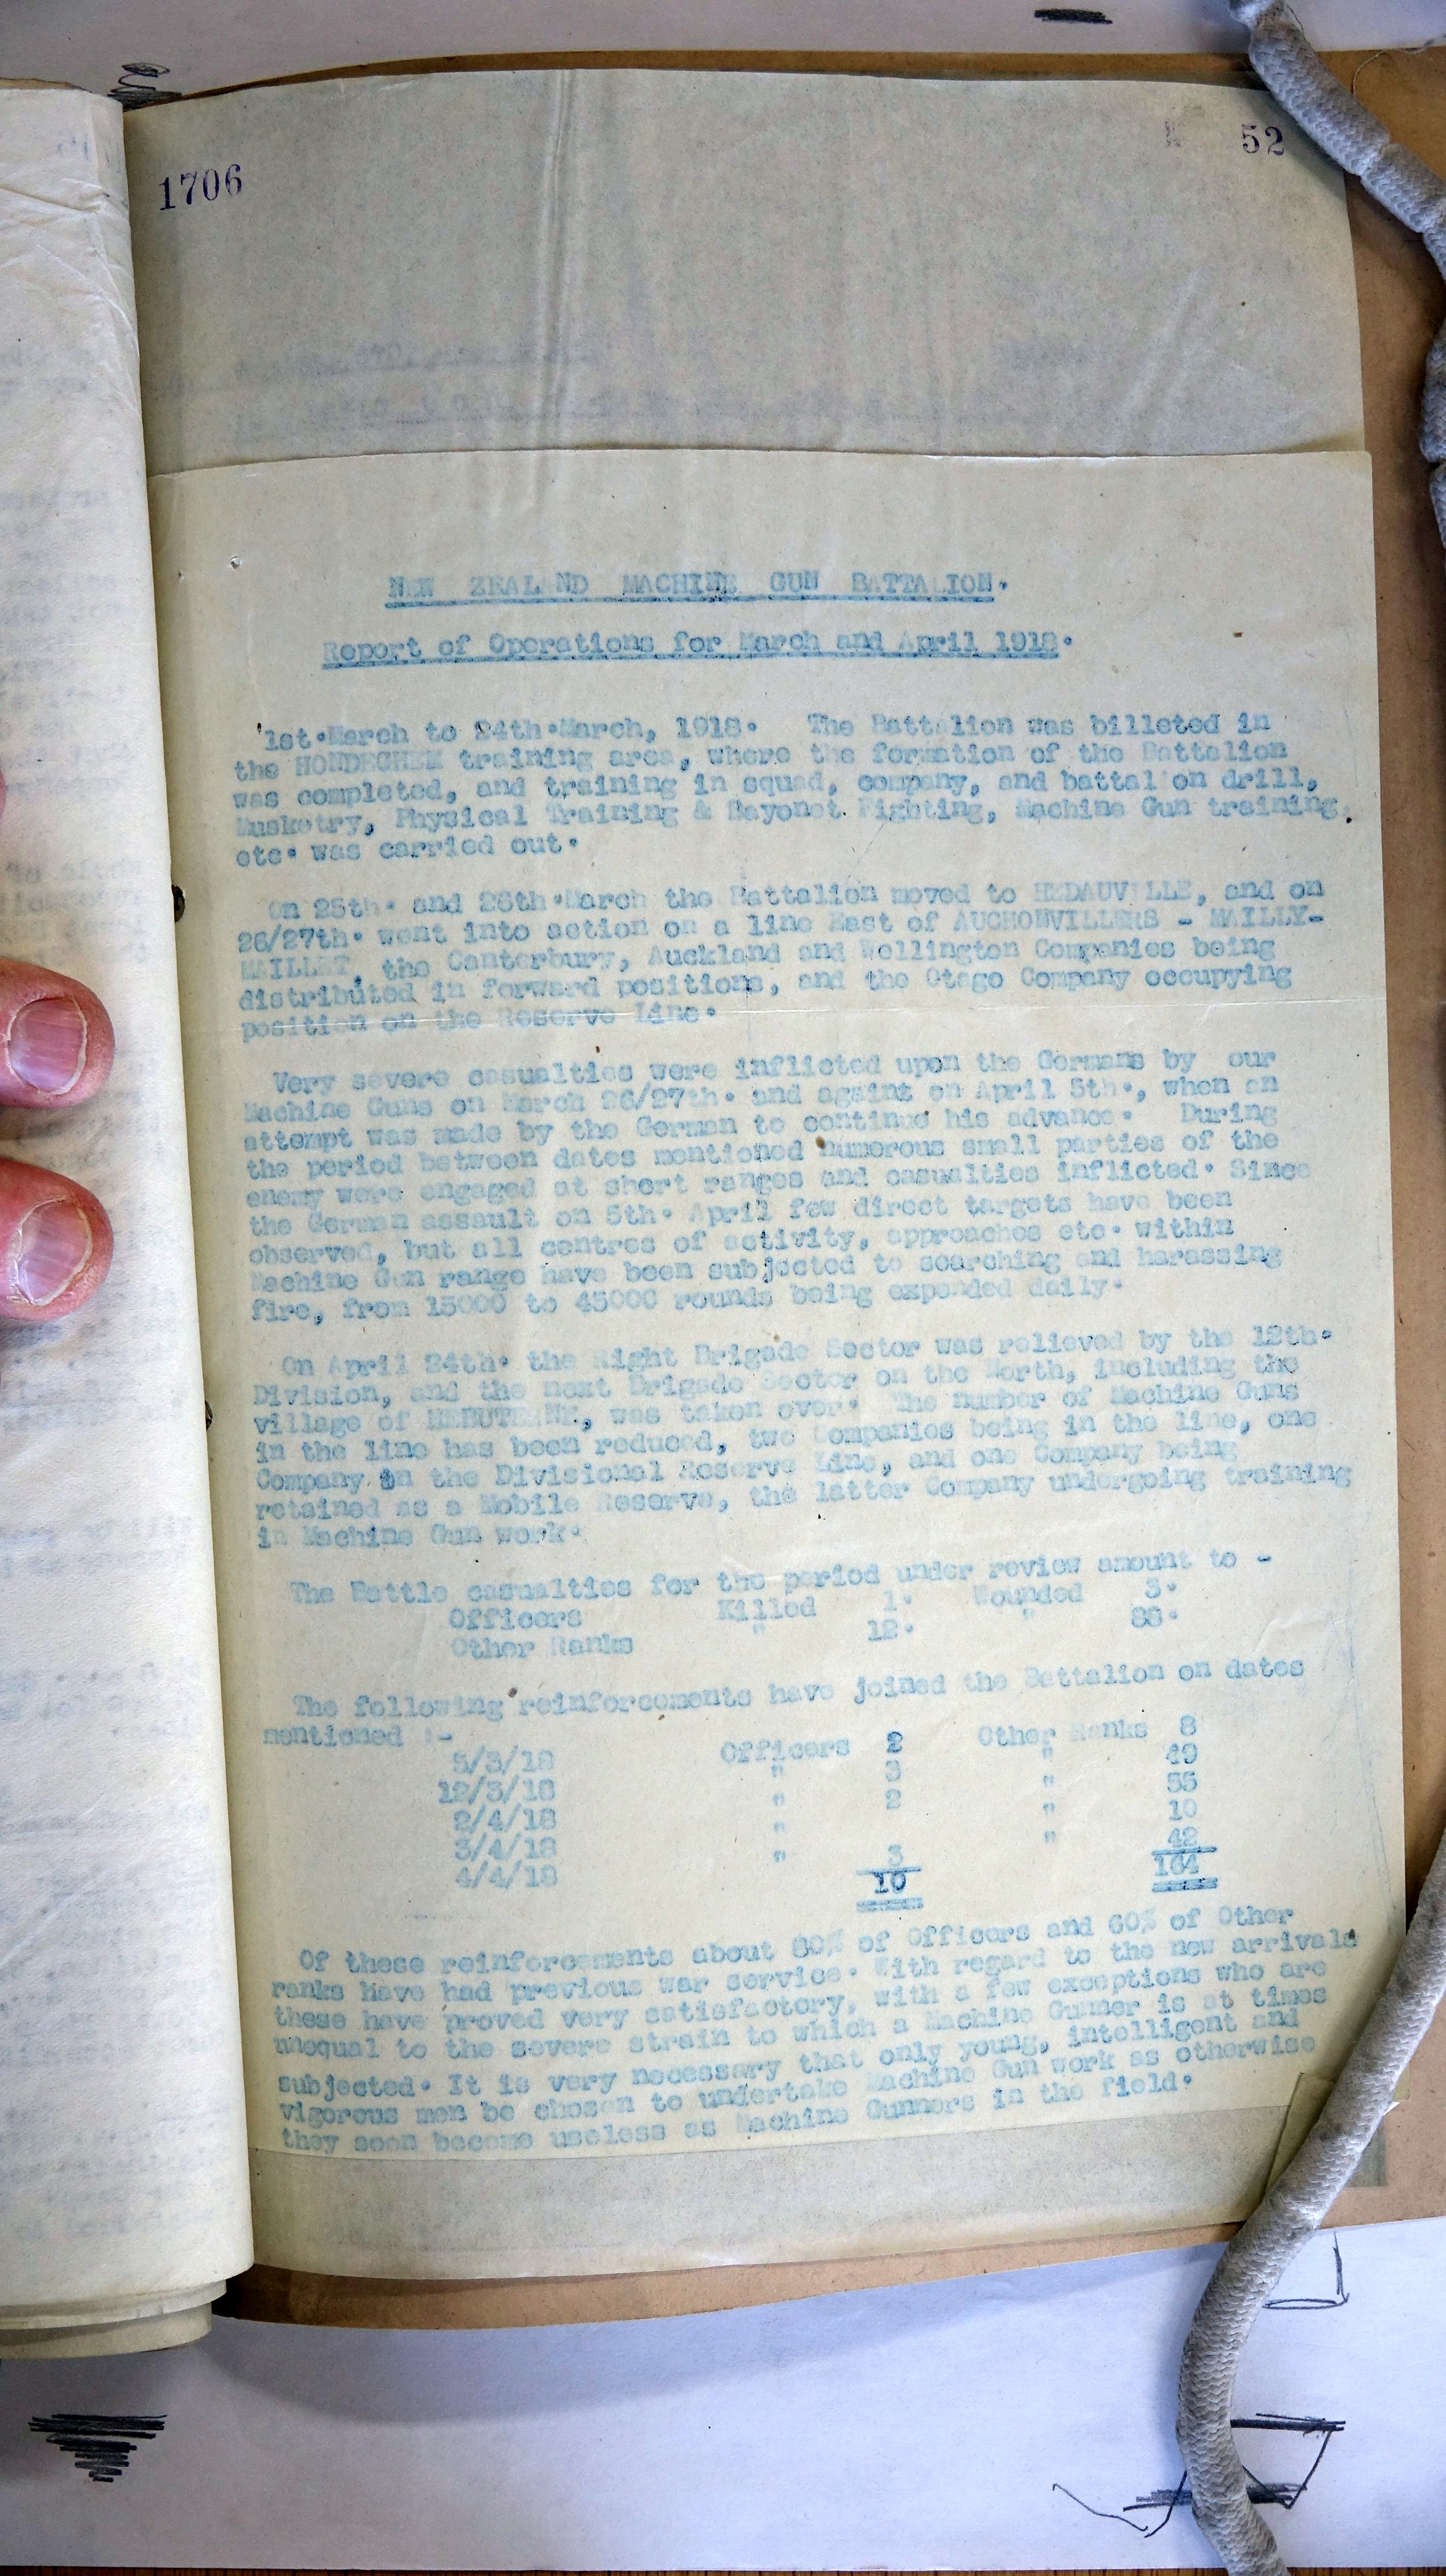 1706
52
NEW ZEALAND MACHINE GUN BATTALION.
Report of Operations for March and April 1918.
1st.March to 24th.March, 1918. The Battalion was billeted in
the HONDEGHEM training area, where the formation of the Battalion
was completed, and training in squad, company, and battalion drill,
Musketry, Physical Training & Bayonet Fighting, Machine Gun training,
etc. was carried out.
On 25th. and 26th.March the Battalion moved to HEDAUVILLE, and on
26/27th. went into action on a line East of AUCHONVILLERS - MAILLY-
MAILLET, the Canterbury, Auckland and Wellington Companies being
distributed in forward positions, and the Otago Company occupying
position on the Reserve Line.
Very severe casualties were inflicted upon the Germans by our
Machine Guns on March 26/27th. and againt on April 5th., when an
attempt was made by the German to continue his advance. During
the period between dates mentioned numerous small parties of the
enemy were engaged at short ranges and casualties inflicted. Since
the German assault on 5th. April few direct targets have been
observed, but all centres of activity, approaches etc. within
Machine Gun range have been subjected to searching and harassing
fire, from 15000 to 45000 rounds being expended daily.
On April 24th. the Right Brigade Sector was relieved by the 12th.
Division, and the next Brigade Sector on the North, including the
village of HEBUTERNE, was taken over. The number of Machine Guns
in the line has been reduced, two Companies being in the line, one
Company in the Divisional Reserve Line, and one Company being
retained as a Mobile Reserve, the latter Company undergoing training
in Machine Gun work.
The Battle casualties for the period under review amount to -
Officers Killed 1. Wounded 3.
Other Ranks " 12. " 88.
The following reinforcements have joined the Battalion on dates
mentioned :-
5/3/18 Officers 2 Other Ranks 8
12/3/18 " 3 " 49
2/4/18 " 2 " 55
3/4/18 " " 10
4/4/18 " 3 " 42
10 164
Of these reinforcements about 80% of Officers and 60% of Other
ranks have had previous war service. With regard to the new arrivals
these have proved very satisfactory, with a few exceptions who are
unequal to the severe strain to which a Machine Gunner is at times
subjected. It is very necessary that only young, intelligent and
vigorous men be chosen to undertake Machine Gun work as otherwise
they soon become useless as Machine Gunners in the field.